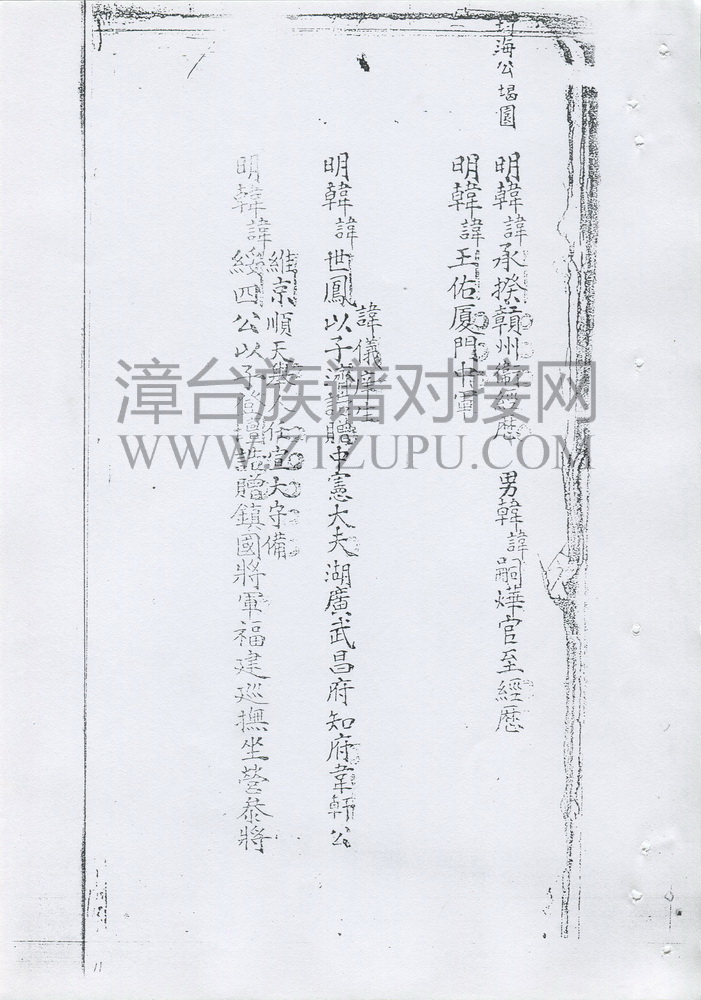 海公堨園
明韓諱承揆贛州衛經歷 男韓諱嗣燁官至經歷
明韓諱王佑廈門中軍
諱儀庠生
明韓諱世鳳以子濟誥贈中憲大夫湖廣武昌府知府韋軒公
維京順天 任宣大守備
明韓諱綏四公以子 誥贈鎮國將軍福建巡撫坐營叅將
漳台族谱对接网
WWW.ZTZUPU.COM
11